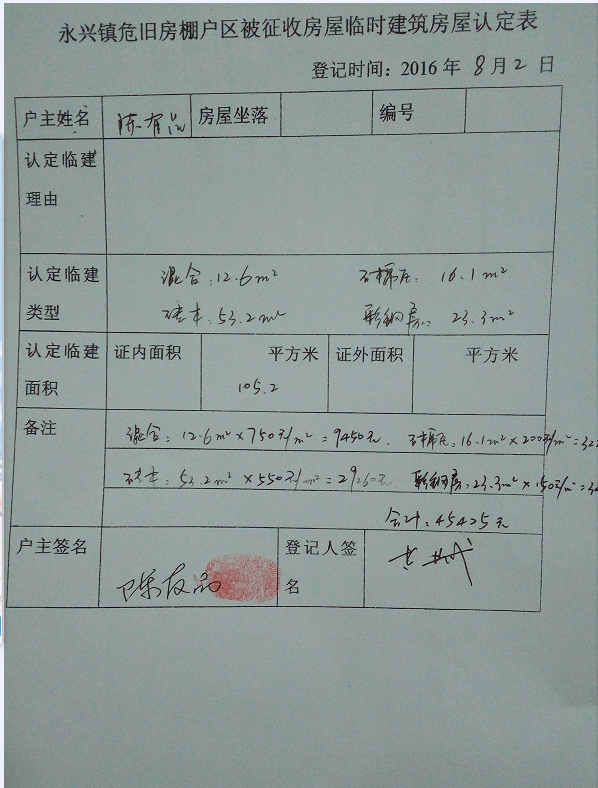 永兴镇危旧房棚户区被征收房屋临时建筑房屋认定表
登记时间：2016 年 8 月 2 日
户主姓名 陈有品 房屋坐落 编号
认定临建理由
认定临建类型
混合：12.6m² 石棉瓦：16.1m²
砖木：53.2m² 彩钢房：23.3m²
认定临建面积 证内面积 105.2 平方米 证外面积 平方米
备注
混合：12.6m²×750元/m²=9450元 石棉瓦：16.1m²×200元/m²=322
砖木：53.2m²×550元/m²=29260元 彩钢房：23.3m²×150元/m²=34
合计：45425元
户主签名 陈友品 登记人签名